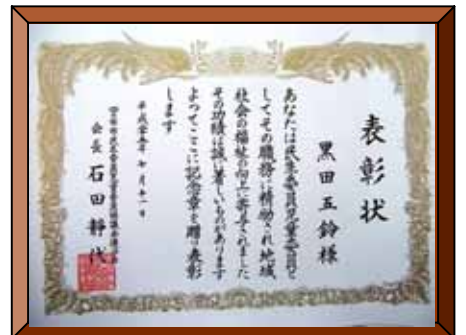 表彰状
黒田五鈴様
あなたは民生委員児童委員と
してその職務に精励され地域
社会の福祉の向上に寄与されました
その功績は誠に著しいものがあります
よってここに記念章を贈り表彰
します
平成
会長 石田静代